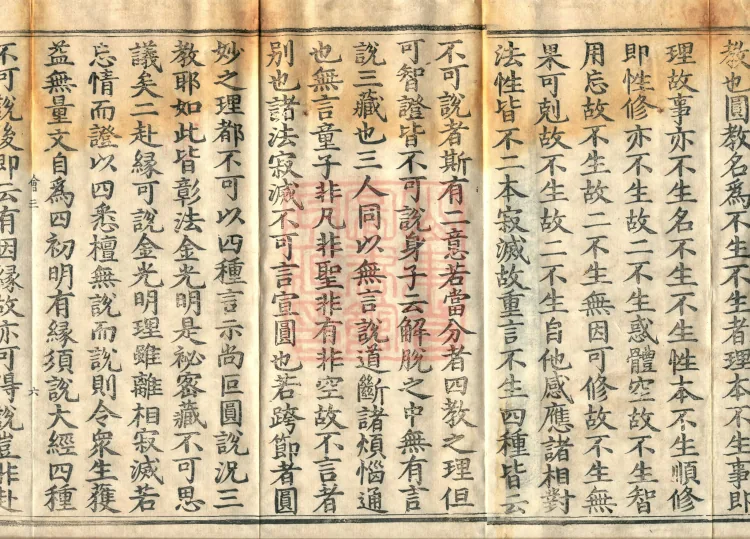 教也圓教名爲不生不生者理本不生事即
理故事亦不生名不生不生性本不生順修
即性修亦不生故二不生惑體空故不生智
用忘故不生故二不生無因可修故不生無
果可剋故不生故二不生自他感應諸相對
法性皆不二本寂滅故重言不生四種皆云
不可說者斯有二意若當分者四教之理但
可智證皆不可說身子云解脫之中無有言
說三藏也三人同以無言說道斷諸煩惱通
也無言童子非凡非聖非有非空故不言者
別也諸法寂滅不可言宣圓也若跨節者圓
妙之理都不可以四種言示尚叵圓說況三
教耶如此皆彰法金光明是祕密藏不可思
議矣二赴緣可說金光明理雖離相寂滅若
忘情而證以四悉檀無說而說則令衆生獲
益無量文自爲四初明有緣須說大經四種
會三
六
不可說後即云有因緣故亦可得說豈非赴